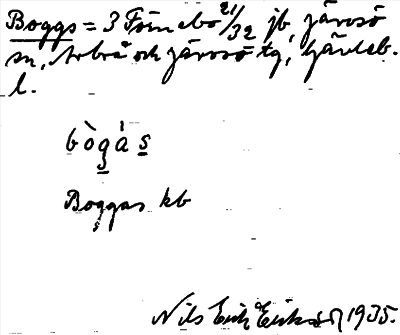 Boggs = 3 Fornebo 21/32 jb, Järvsö
sn, Arbrå och Järvsö tg, Gävleb.
l.
bògá s
Boggas kb
Nils Erik Eriksson 1935.